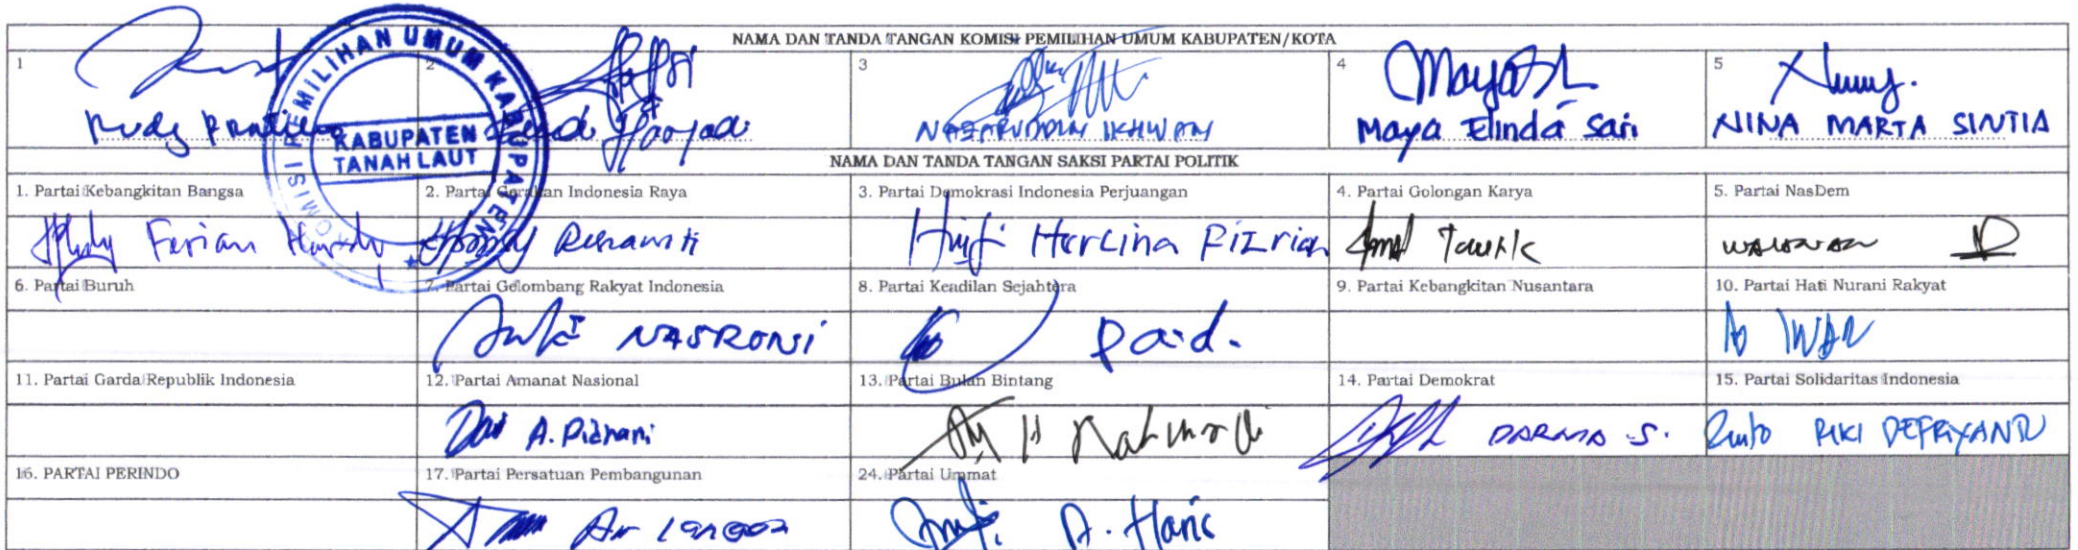 NAMA DAN TANDA TANGAN KOMISI PEMILIHAN UMUM KABUPATEN/KOTA
1 2 3 4 5
KOMISI PEMILIHAN UMUM KABUPATEN
KABUPATEN
TANAH LAUT
Rudy NAZARUDDIN IKHWAN Maya Elinda Sari NINA MARTA SINTIA
NAMA DAN TANDA TANGAN SAKSI PARTAI POLITIK
1. Partai Kebangkitan Bangsa 2. Partai Gerakan Indonesia Raya 3. Partai Demokrasi Indonesia Perjuangan 4. Partai Golongan Karya 5. Partai NasDem
Ferian Herlina Fizrian Taufik
6. Partai Buruh 7. Partai Gelombang Rakyat Indonesia 8. Partai Keadilan Sejahtera 9. Partai Kebangkitan Nusantara 10. Partai Hati Nurani Rakyat
NASRONI Pa.d. IWAN
11. Partai Garda Republik Indonesia 12. Partai Amanat Nasional 13. Partai Bulan Bintang 14. Partai Demokrat 15. Partai Solidaritas Indonesia
A. Pidhani H Rahmadi DARMA S. RIKI DEFRIYANTO
16. PARTAI PERINDO 17. Partai Persatuan Pembangunan 24. Partai Ummat
A. Haris